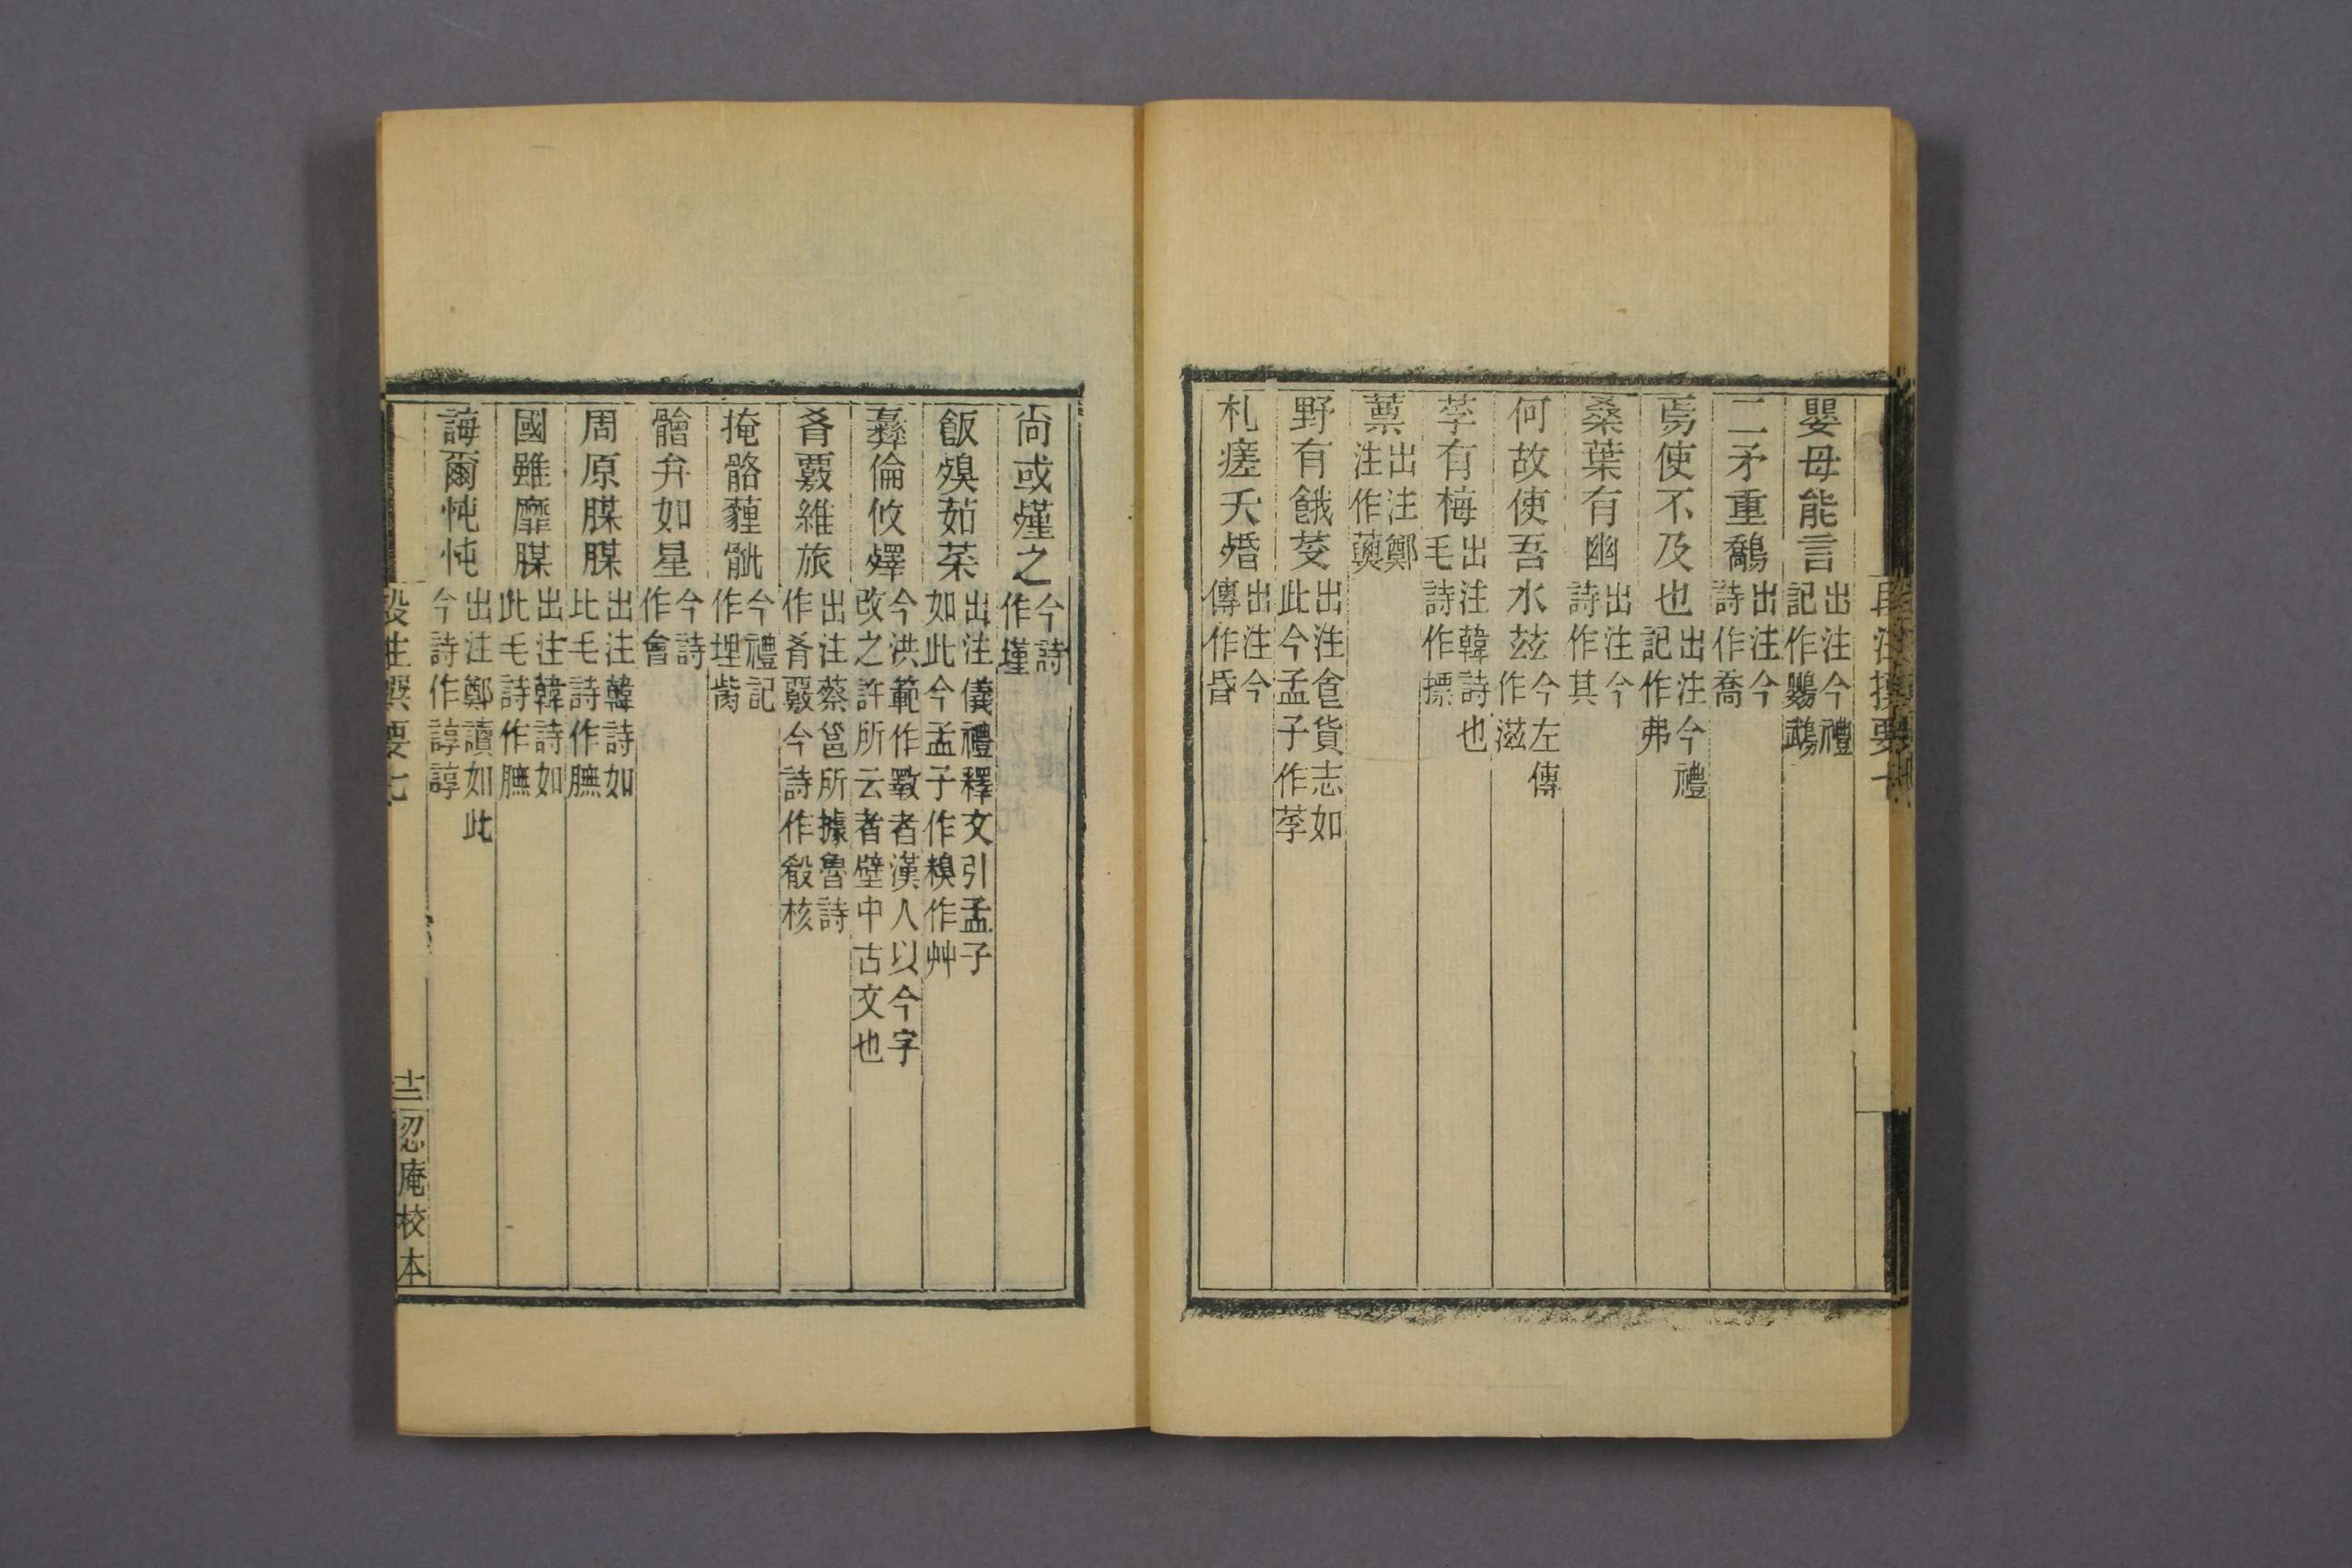 嬰母能言出注今禮記作鸚鵡
二矛重鷮出注今詩作喬
焉使不及也出注今禮記作弗
桑葉有幽出注今詩作其
何故使吾水玆今左傳作滋
莩有梅出注韓詩也毛詩作摽
薁出注鄭注作薁
野有餓芟出注食貨志如此今孟子作莩
札瘥夭殙出注今傳作昏
段注撰要七
尚或殣之今詩作墐
飯殠茹菜出注儀禮釋文引孟子如此今孟子作糗作艸
彝倫攸殬今洪範作斁者漢人以今字改之許所云者壁中古文也
肴覈維旅出注蔡邕所據魯詩作肴覈今詩作殽核
掩骼薶骴今禮記作埋胔
膾弁如星今詩作會
周原腜腜出注韓詩如此毛詩作膴
國雖靡腜出注韓詩如此毛詩作膴
誨爾忳忳出注鄭讀如此今詩作諄諄
段注撰要七
十二
忍庵校本